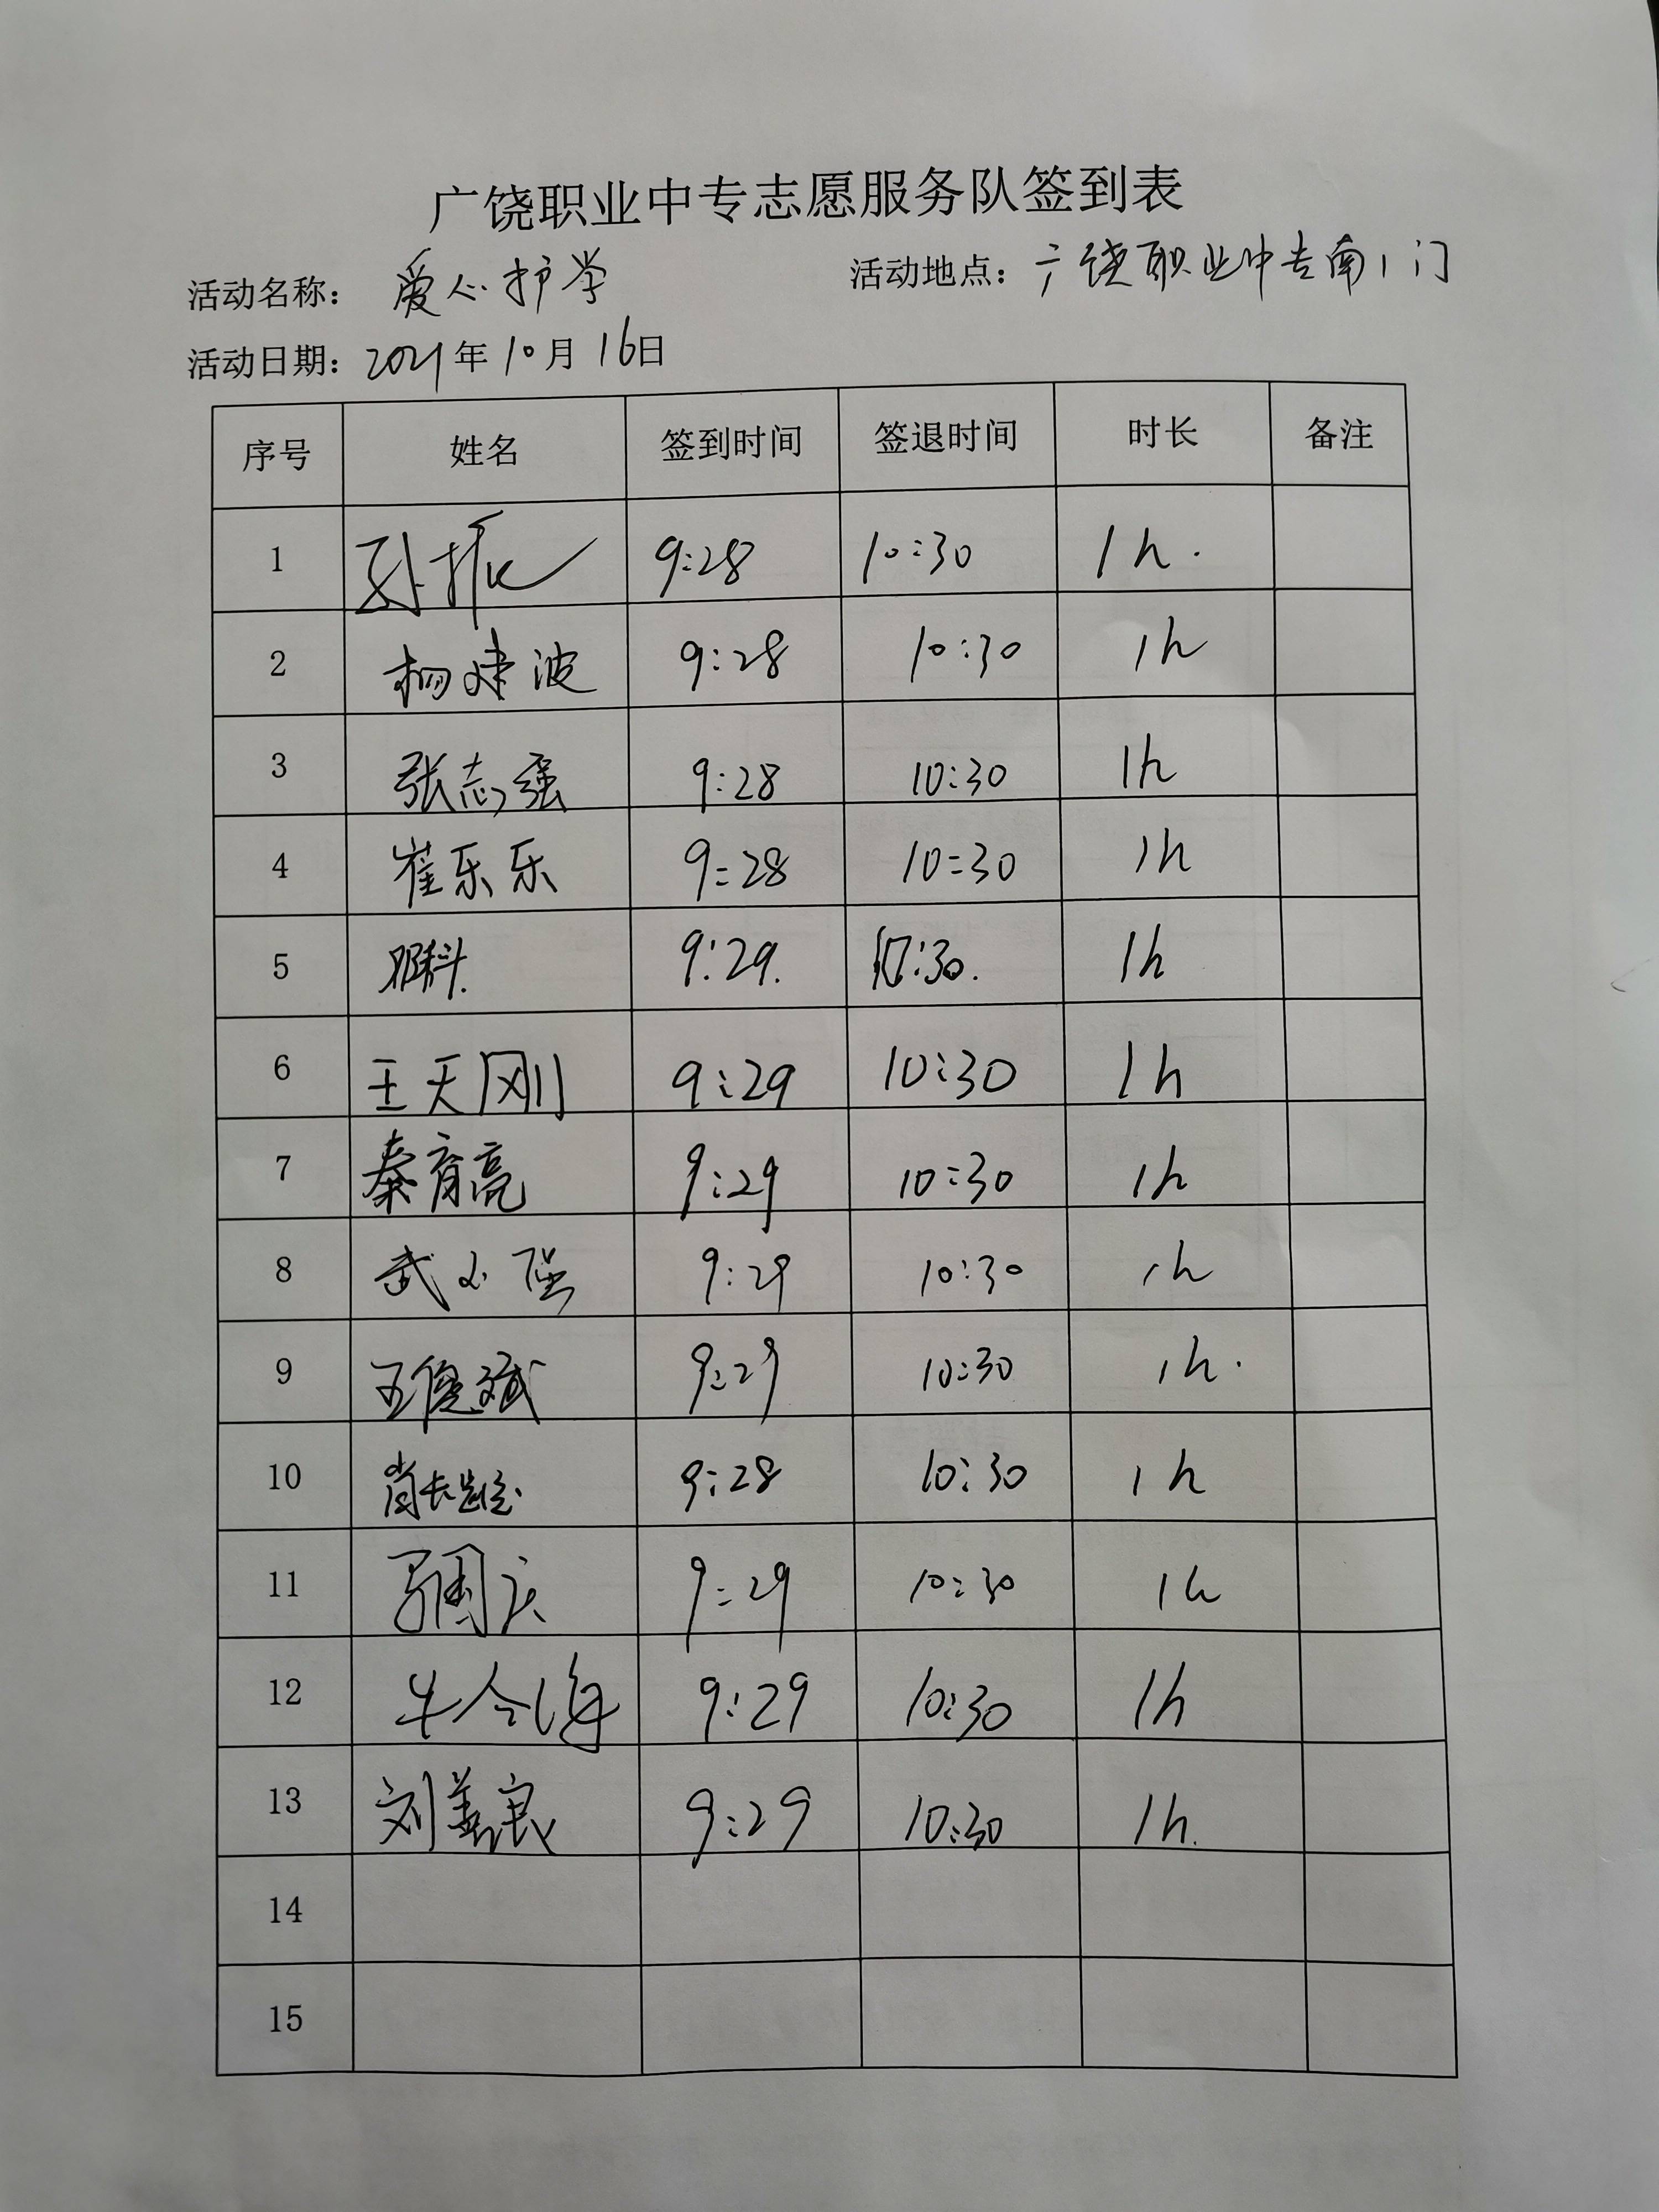 广饶职业中专志愿服务队签到表
活动名称：爱心护学 活动地点：广饶职业中专南门
活动日期：2021年10月16日
序号 姓名 签到时间 签退时间 时长 备注
1 孙振 9:28 10:30 1h.
2 杨建波 9:28 10:30 1h
3 张志强 9:28 10:30 1h
4 崔乐乐 9:28 10:30 1h
5 9:29. 10:30. 1h
6 王天刚 9:29 10:30 1h
7 秦育亮 9:29 10:30 1h
8 武小强 9:29 10:30 1h
9 王俊斌 9:29 10:30 1h.
10 9:28 10:30 1h
11 国庆 9:29 10:30 1h
12 牛令海 9:29 10:30 1h
13 刘善良 9:29 10:30 1h.
14
15